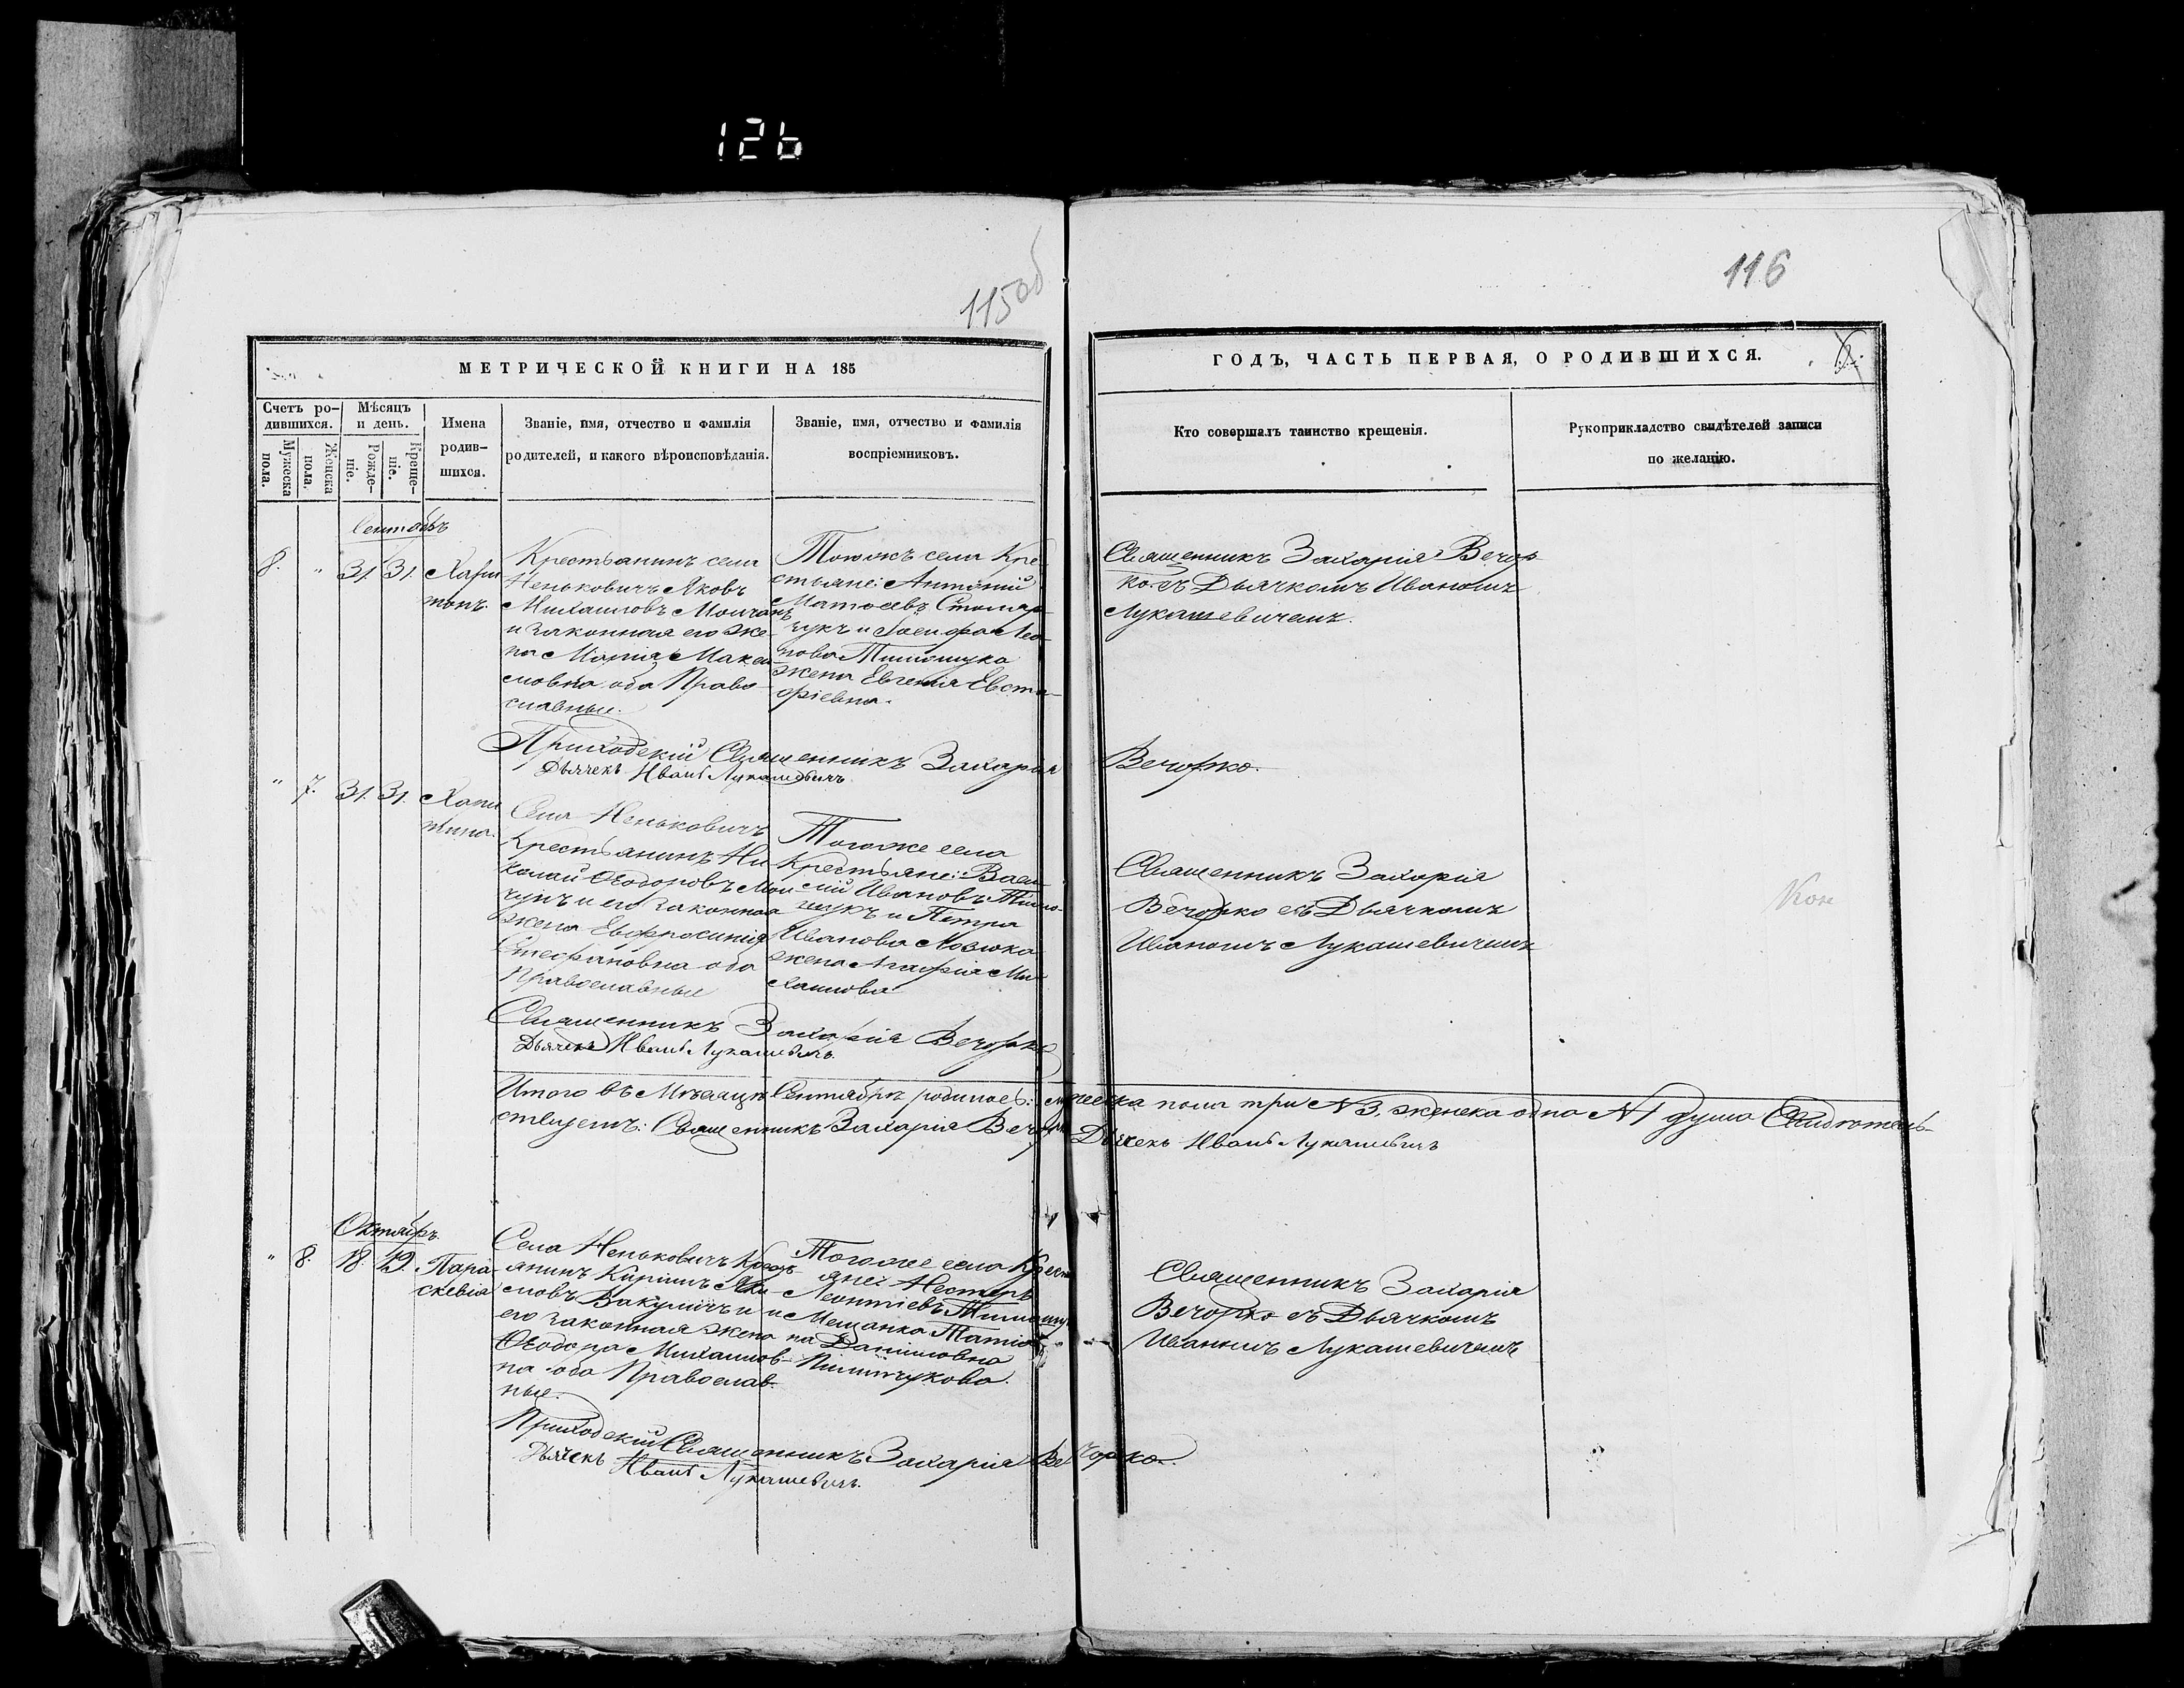 126
115об
116
МЕТРИЧЕСКОЙ КНИГИ НА 185
ГОДЪ, ЧАСТЬ ПЕРВАЯ, О РОДИВШИХСЯ.
Счетъ ро-
дившихся.
Мужеска
пола.
Женска
пола.
Мѣсяцъ
и день.
Рожде-
ніе.
Креще-
ніе.
Имена
родив-
шихся.
Званіе, имя, отчество и фамилія
родителей, и какого вѣроисповѣданія.
Званіе, имя, отчество и фамилія
воспріемниковъ.
Кто совершалъ таинство крещенія.
Рукоприкладство свидѣтелей записи
по желанію.
Сентябрь
8. " 31. 31. Хари
тонъ.
Крестьянинъ села
Неньковичъ Яковъ
Михаиловъ Мончанъ
и законная его же-
на Марія Макси
мовна оба Право-
славные.
Тогожъ села Кре
стьяне: Антоній
Матѳеевъ Столяр-
чукъ и Іосифа Лео-
нова Тимощука
жена Евгенія Евста-
фіевна.
Священникъ Захарія Вечор-
ко съ Дьячкомъ Иваномъ
Лукашевичемъ.
Приходскій Священникъ Захарія Вечорко.
Дьячекъ Иванъ Лукашевичъ
" 7. 31. 31. Хари
тина.
Села Неньковичъ
Крестьянинъ Ни
колай Ѳеодоровъ
и его законная
жена Евфросинія
Стефановна оба
Православные
Тогоже села
Крестьяне: Васи-
лій Ивановъ Тимо-
щукъ и Петра
Иванова
жена Агафія Ми
хаилова
Священникъ Захарія
Вечорко съ Дьячкомъ
Иваномъ Лукашевичемъ
Священникъ Захарія Вечорко
Дьячекъ Иванъ Лукашевичъ.
Итого въ Мѣсяцѣ Сентябрѣ родилось: мужеска пола три №3, женска одна №1 душа Свидѣтель-
ствуемъ: Священникъ Захарія Вечорко Дьячекъ Иванъ Лукашевичъ
Октябрь.
" 8. 18. 19. Пара-
скевія
Села Неньковичъ Крест
янинъ Кириллъ Яки-
мовъ Вакуличъ и
его законная жена
Ѳеодора Михаилов-
на оба Православ-
ные.
Тогоже села Крестья
яне: Несторъ
Леонтіевъ Тимощук
и Мещанка Татія-
на Даниловна
Пилипчукова.
Священникъ Захарія
Вечорко съ Дьячкомъ
Иваномъ Лукашевичемъ
Приходскій Священникъ Захарія Вечорко.
Дьячекъ Иванъ Лукашевичъ.